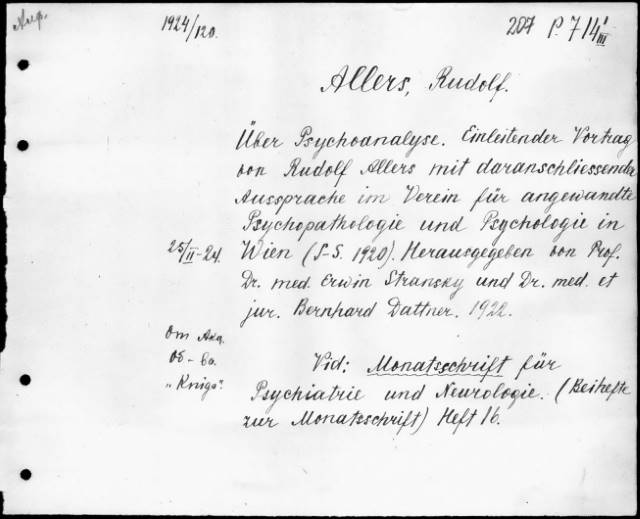 1924/120.
207 P. 714 1/III
Allers, Rudolf.
Über Psychoanalyse. Einleitender Vortrag
von Rudolf Allers mit daranschliessender
Aussprache im Verein für angewandte
Psychopathologie und Psychologie in
25/II-24. Wien (S-S. 1920). Herausgegeben von Prof.
Dr. med. Erwin Stransky und Dr. med. et
jur. Bernhard Dattner. 1922.
Vid: Monatsschrift für
Psychiatrie und Neurologie. (Beihefte
zur Monatsschrift) Heft 16.